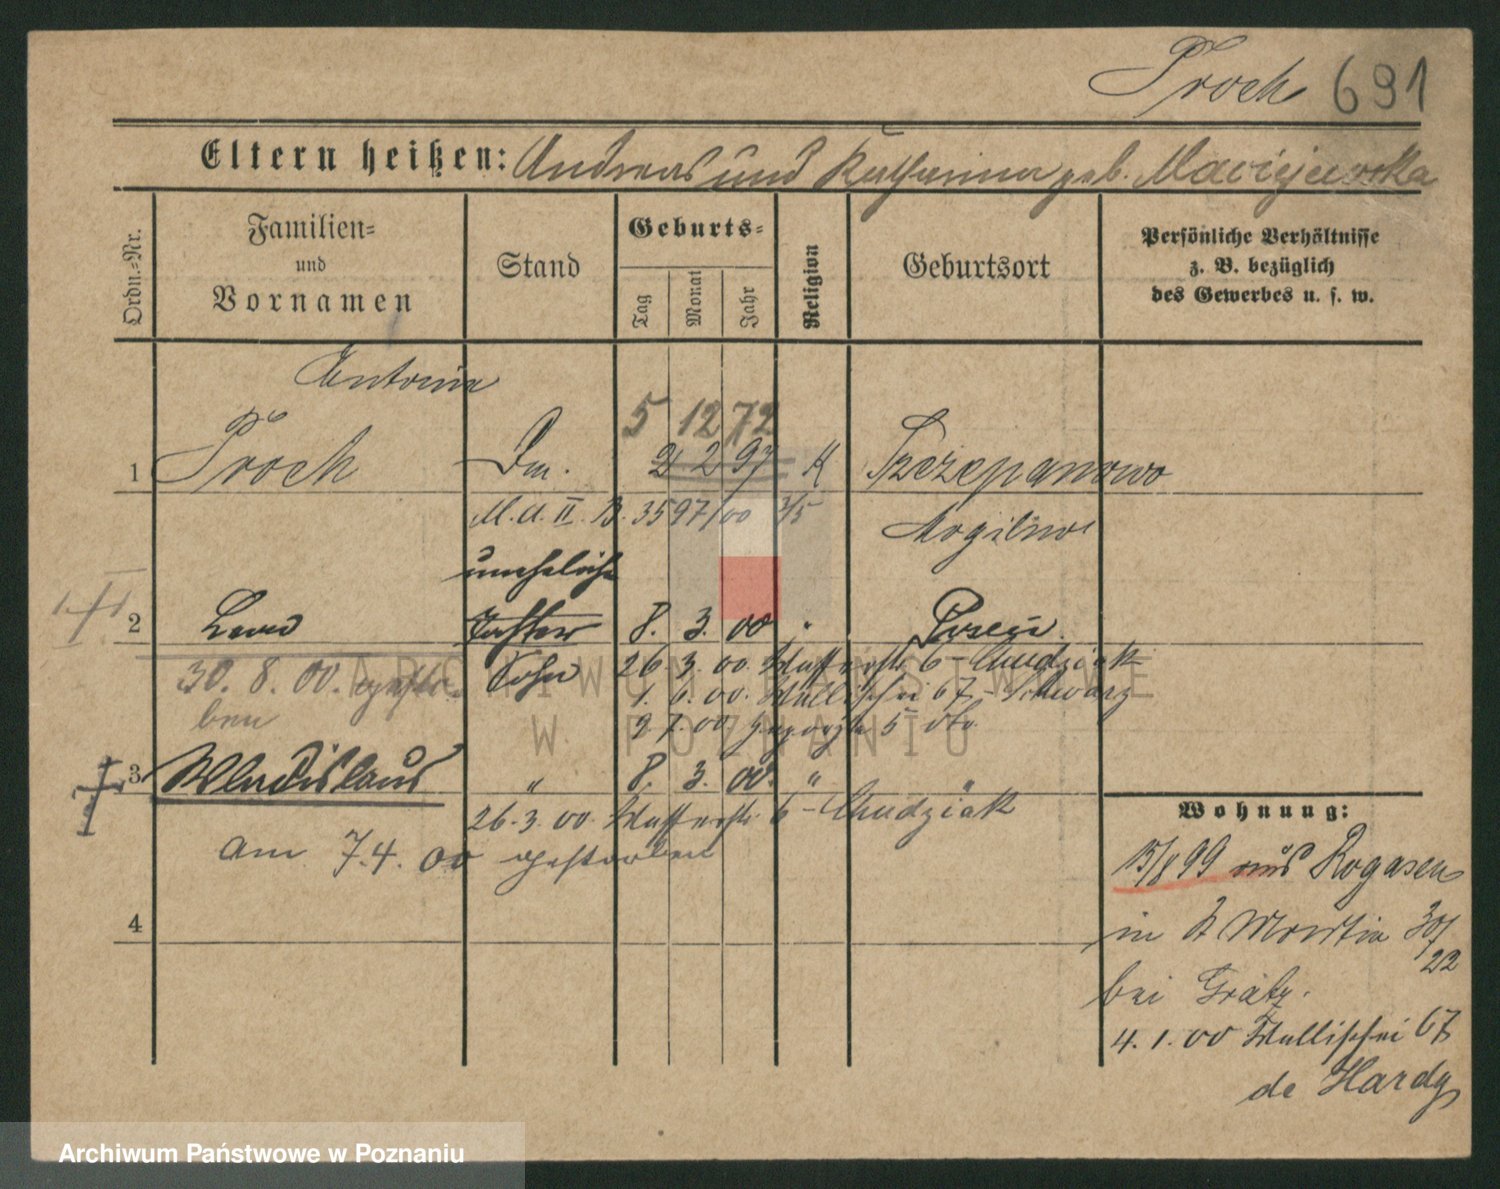 Troch 691
Eltern heißen: Andreas und Katharina geb. Maciejewska
Ordn.-Nr.
Familien-
und
Vornamen
Stand
Geburts-
Tag
Monat
Jahr
Religion
Geburtsort
Persönliche Verhältnisse
z. B. bezüglich
des Gewerbes u. s. w.
Antonia
5 12 72
1 Troch Dm. 2 2 97 K Szczepanowo
M. A. II. B. 3597/00 3/5 Mogilno
uneheliche
2 Leo Tochter 8. 3. 00 " Posen
Sohn 26. 3. 00. 6 - Chudziak
30. 8. 00. gestor
1. 6. 00. Wallischei 67 - Schwarz
ben
00 5
3 Wladislaus " 8. 3. 00. " "
26. 3. 00. 6 - Chudziak
am 7. 4. 00 gestorben
4
Wohnung:
15/8 99 aus Rogasen
in St Martin 30/
22
bei Grätz.
4. 1. 00 Wallischei 67
de Hardy
ARCHIWUM PAŃSTWOWE
W POZNANIU
Archiwum Państwowe w Poznaniu